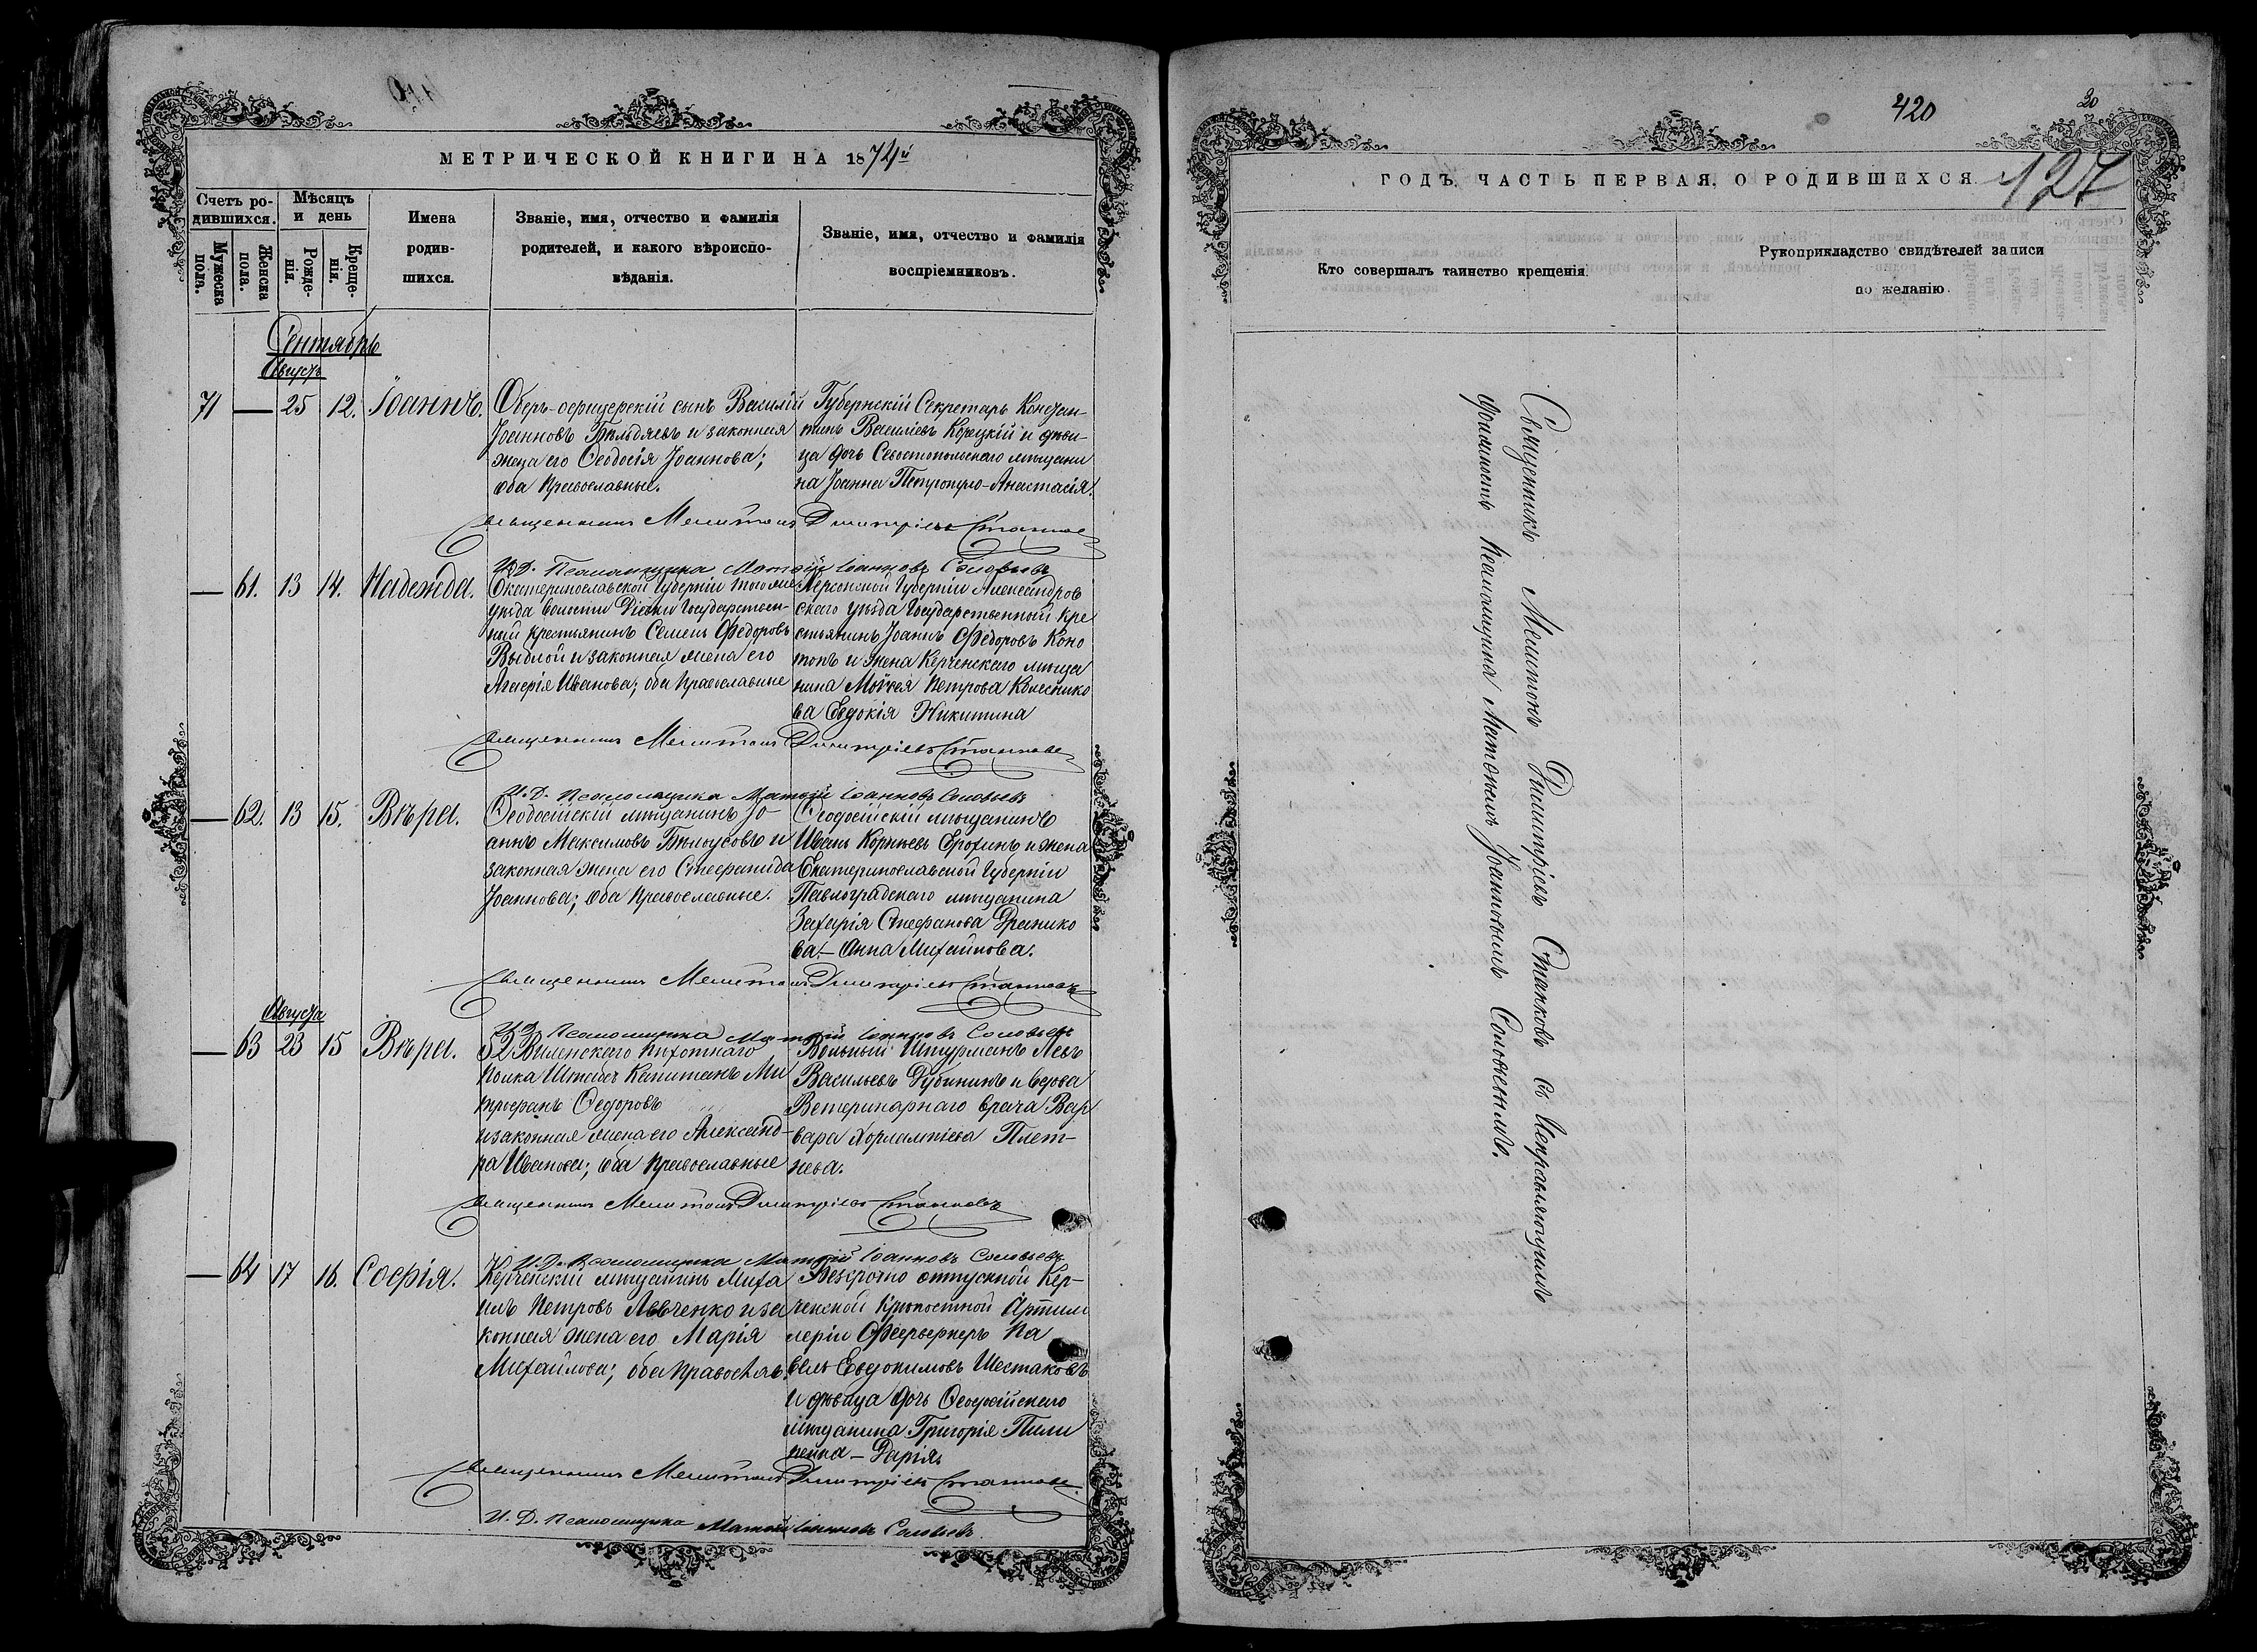 МЕТРИЧЕСКОЙ КНИГИ НА 1874й
Счетъ ро-
дившихся.
Мужеска пола.
Женска пола.
Мѣсяцъ
и день
Рожде-
нія.
Креще-
нія.
Имена
родив-
шихся.
Званіе, имя, отчество и фамилія
родителей, и какого вѣроиспо-
вѣданія.
Званіе, имя, отчество и фамилія
воспріемниковъ.
Сентябрь
Августъ
71 — 25 12. Іоаннъ.
Оберъ-офицерскій сынъ Василій
Іоанновъ и законная
жена его Ѳеодосія Іоаннова;
оба Православные.
Губернскій Секретарь Констан-
тинъ Василіевъ Корецкій и дѣви-
ца дочь Севостопольскаго мѣщани
на Іоанна Анастасія.
Священникъ Мелитонъ Димитріевъ Станковъ
И.Д. Псаломщика Матѳій Іоанновъ Соловьевъ
— 61. 13 14. Надежда.
Екатеринославской Губерніи того же
уѣзда волости Діевки Государствен-
ный крестьянинъ Семенъ Ѳедоровъ
и законная жена его
Марія Иванова; оба Православные
Херсонской Губерніи Александров
скаго уѣзда Государственный кре
стьянинъ Іоаннъ Ѳедоровъ Коно
топъ и жена Керченскаго мѣща
нина Моѵсея Петрова Колеснико
ва Евдокія Никитина
Священникъ Мелитонъ Димитріевъ Станковъ
И.Д. Псаломщика Матѳій Іоанновъ Соловьевъ
— 62. 13 15. Вѣра.
Ѳеодосійскій мѣщанинъ Іо-
аннъ Максимовъ Бѣлоусовъ и
законная жена его Стефанида
Іоаннова; оба Православные.
Ѳеодосійскій мѣщанинъ
Иванъ Корнѣевъ Ерохинъ и жена
Екатеринославской Губерніи
Павлоградскаго мѣщанина
Захарія Стефанова Драннико
ва — Анна Михайлова.
Священникъ Мелитонъ Димитріевъ Станковъ
И.Д. Псаломщика Матѳій Іоанновъ Соловьевъ
Августа
— 63 23 15 Вѣра.
52 Виленскаго пѣхотнаго
полка Штабсъ Капитанъ Ми
трофанъ Ѳедоровъ
и законная жена его Александ-
ра Иванова; оба Православные
Вольный Штурманъ Левъ
Васильевъ Дубининъ и вдова
Ветеринарнаго врача Вар
вара Харлампіева Плет-
нева.
Священникъ Мелитонъ Димитріевъ Станковъ
И.Д. Псаломщика Матѳій Іоанновъ Соловьевъ
— 64 17 16. Софія.
Керченскій мѣщанинъ Миха
илъ Петровъ Левченко и за
конная жена его Марія
Михайлова; оба Православ.
Безсрочно отпускной Кер-
ченской Крѣпостной Артил
леріи Фейерверкеръ Па
велъ Евдокимовъ Шестаковъ
и дѣвица дочь Ѳеодосійскаго
мѣщанина Григорія Пили
пенка — Дарія.
Священникъ Мелитонъ Димитріевъ Станковъ
И.Д. Псаломщика Матѳій Іоанновъ Соловьевъ.
420
20
127
ГОДЪ, ЧАСТЬ ПЕРВАЯ, О РОДИВШИХСЯ.
Кто совершалъ таинство крещенія.
Рукоприкладство свидѣтелей записи
по желанію.
Священникъ Мелитонъ Димитріевъ Станковъ съ Исправляющимъ
должность Псаломщика Матѳіемъ Іоанновымъ Соловьевымъ.